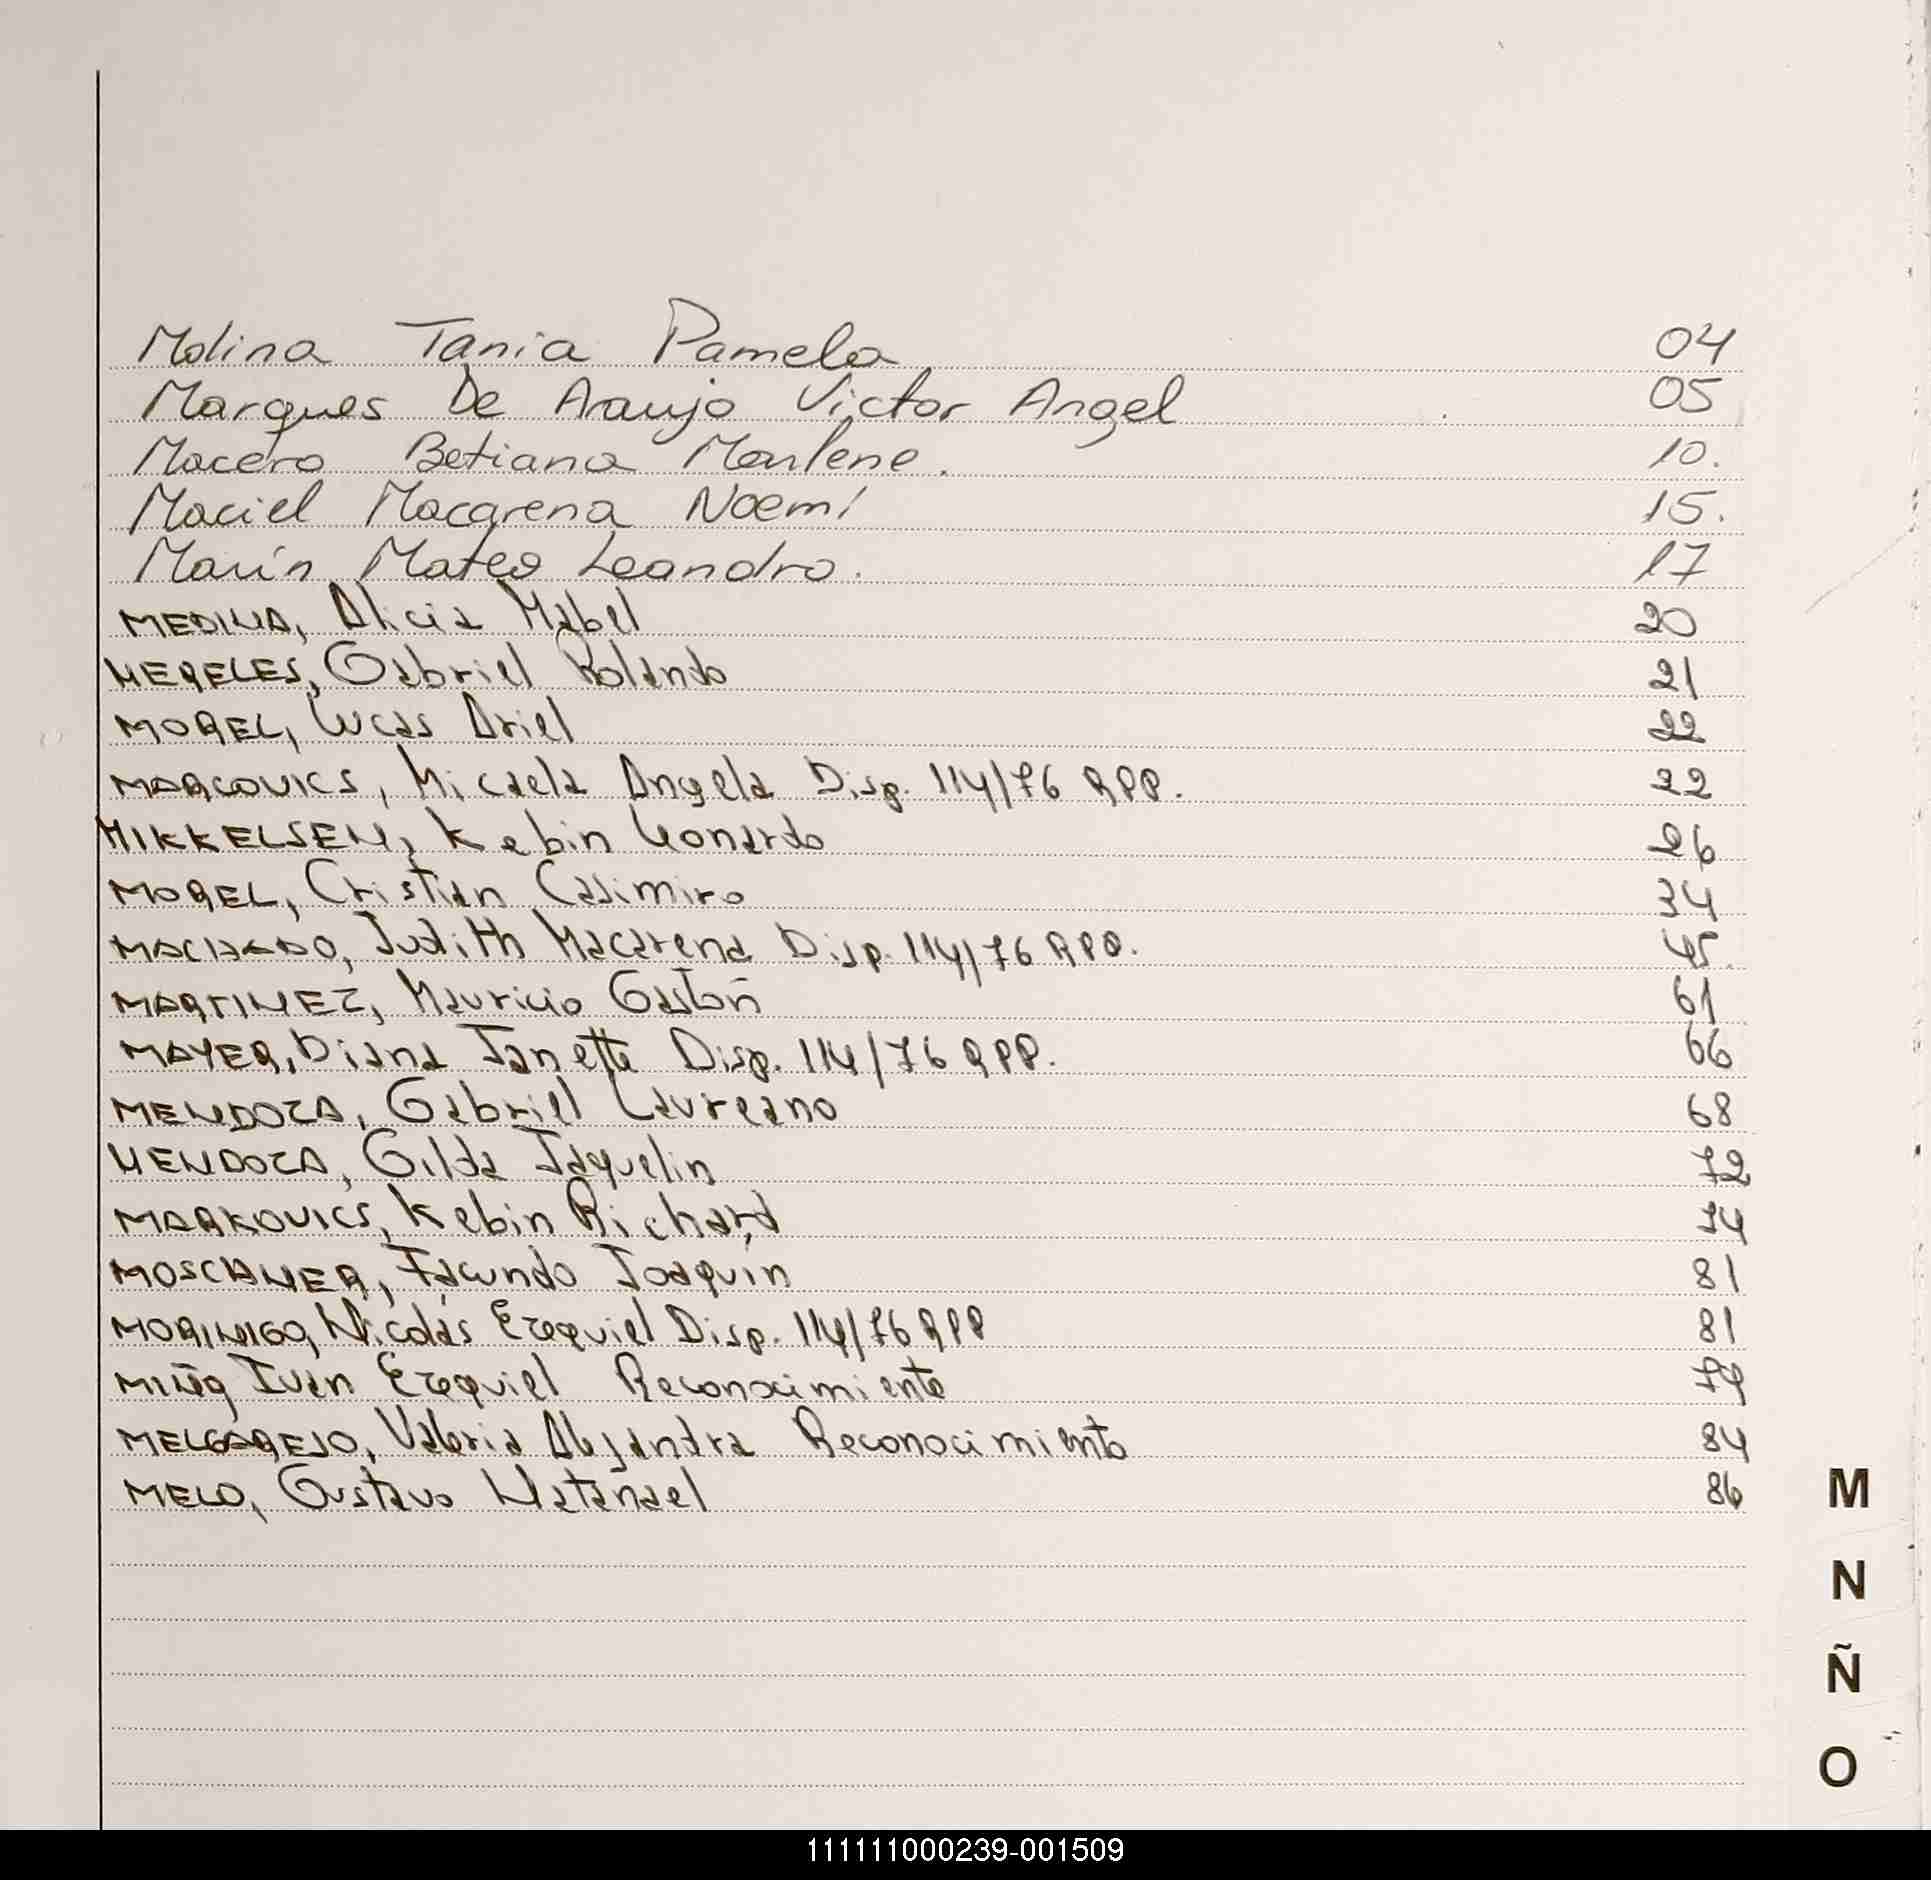 Molina Tania Pamela 04
Marques De Araujo Victor Angel 05
Macero Betiana Marlene. 10.
Maciel Macarena Noemí 15.
Marín Mateo Leandro. 17
MEDINA, Alicia Mabel 20
MERELES, Gabriel Rolando 21
MOREL, Lucas Ariel 22
MARCOVICS, Micaela Angela Disp. 114/76 RPP. 22
MIKKELSEN, Kebin Leonardo 26
MOREL, Cristian Casimiro 34
MACHADO, Judith Macarena Disp. 114/76 RPP. 45
MARTINEZ, Mauricio Gastón 61
MAYER, Diana Janette Disp. 114/76 RPP. 66
MENDOZA, Gabriel Laureano 68
MENDOZA, Gilda Jaquelin 72
MARKOVICS, Kebin Richard 74
MOSCANER, Facundo Joaquín 81
MORINIGO, Nicolás Ezequiel Disp. 114/76 RPP 81
Iván Ezequiel Reconocimiento
MELGAREJO, Valeria Alejandra Reconocimiento 84
MELO, Gustavo Natanael 86
M
N
Ñ
O
111111000239-001509